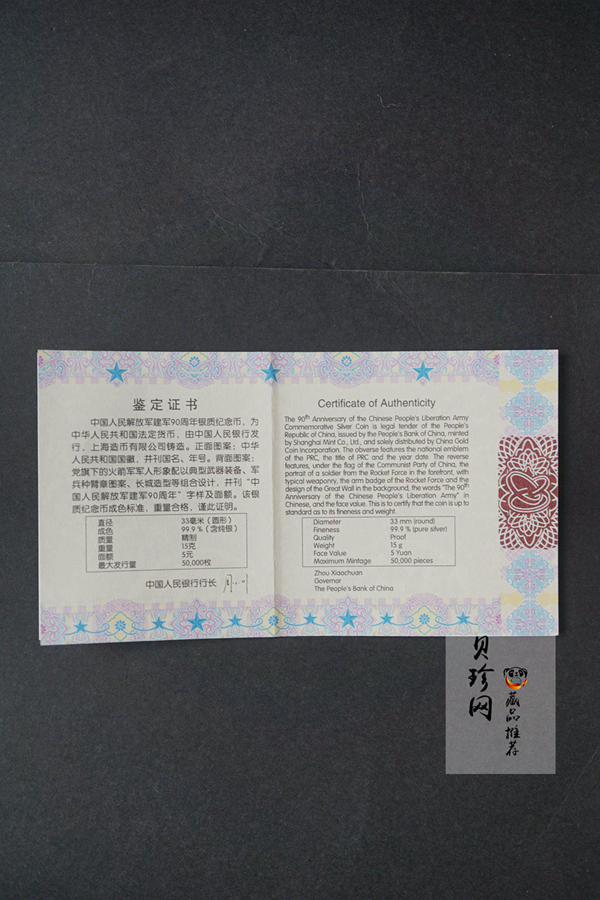 鉴定证书
中国人民解放军建军90周年银质纪念币，为
中华人民共和国法定货币，由中国人民银行发
行，上海造币有限公司铸造。正面图案：中华
人民共和国国徽，并刊国名、年号。背面图案：
党旗下的火箭军军人形象配以典型武器装备、军
兵种臂章图案、长城造型等组合设计，并刊“中
国人民解放军建军90周年”字样及面额。该银
质纪念币成色标准，重量合格，谨此证明。
直径 33毫米（圆形）
成色 99.9％（含纯银）
质量 精制
重量 15克
面额 5元
最大发行量 50,000枚
中国人民银行行长
Certificate of Authenticity
The 90th Anniversary of the Chinese People's Liberation Army
Commemorative Silver Coin is legal tender of the People's
Republic of China, issued by the People's Bank of China, minted
by Shanghai Mint Co., Ltd., and solely distributed by China Gold
Coin Incorporation. The obverse features the national emblem
of the PRC, the title of PRC and the year date. The reverse
features, under the flag of the Communist Party of China, the
portrait of a soldier from the Rocket Force in the forefront, with
typical weaponry, the arm badge of the Rocket Force and the
design of the Great Wall in the background, the words "The 90th
Anniversary of the Chinese People's Liberation Army" in
Chinese, and the face value. This is to certify that the coin is up to
standard as to its fineness and weight.
Diameter 33 mm (round)
Fineness 99.9 % (pure silver)
Quality Proof
Weight 15 g
Face Value 5 Yuan
Maximum Mintage 50,000 pieces
Zhou Xiaochuan
Governor
The People's Bank of China
贝珍网
藏品推荐